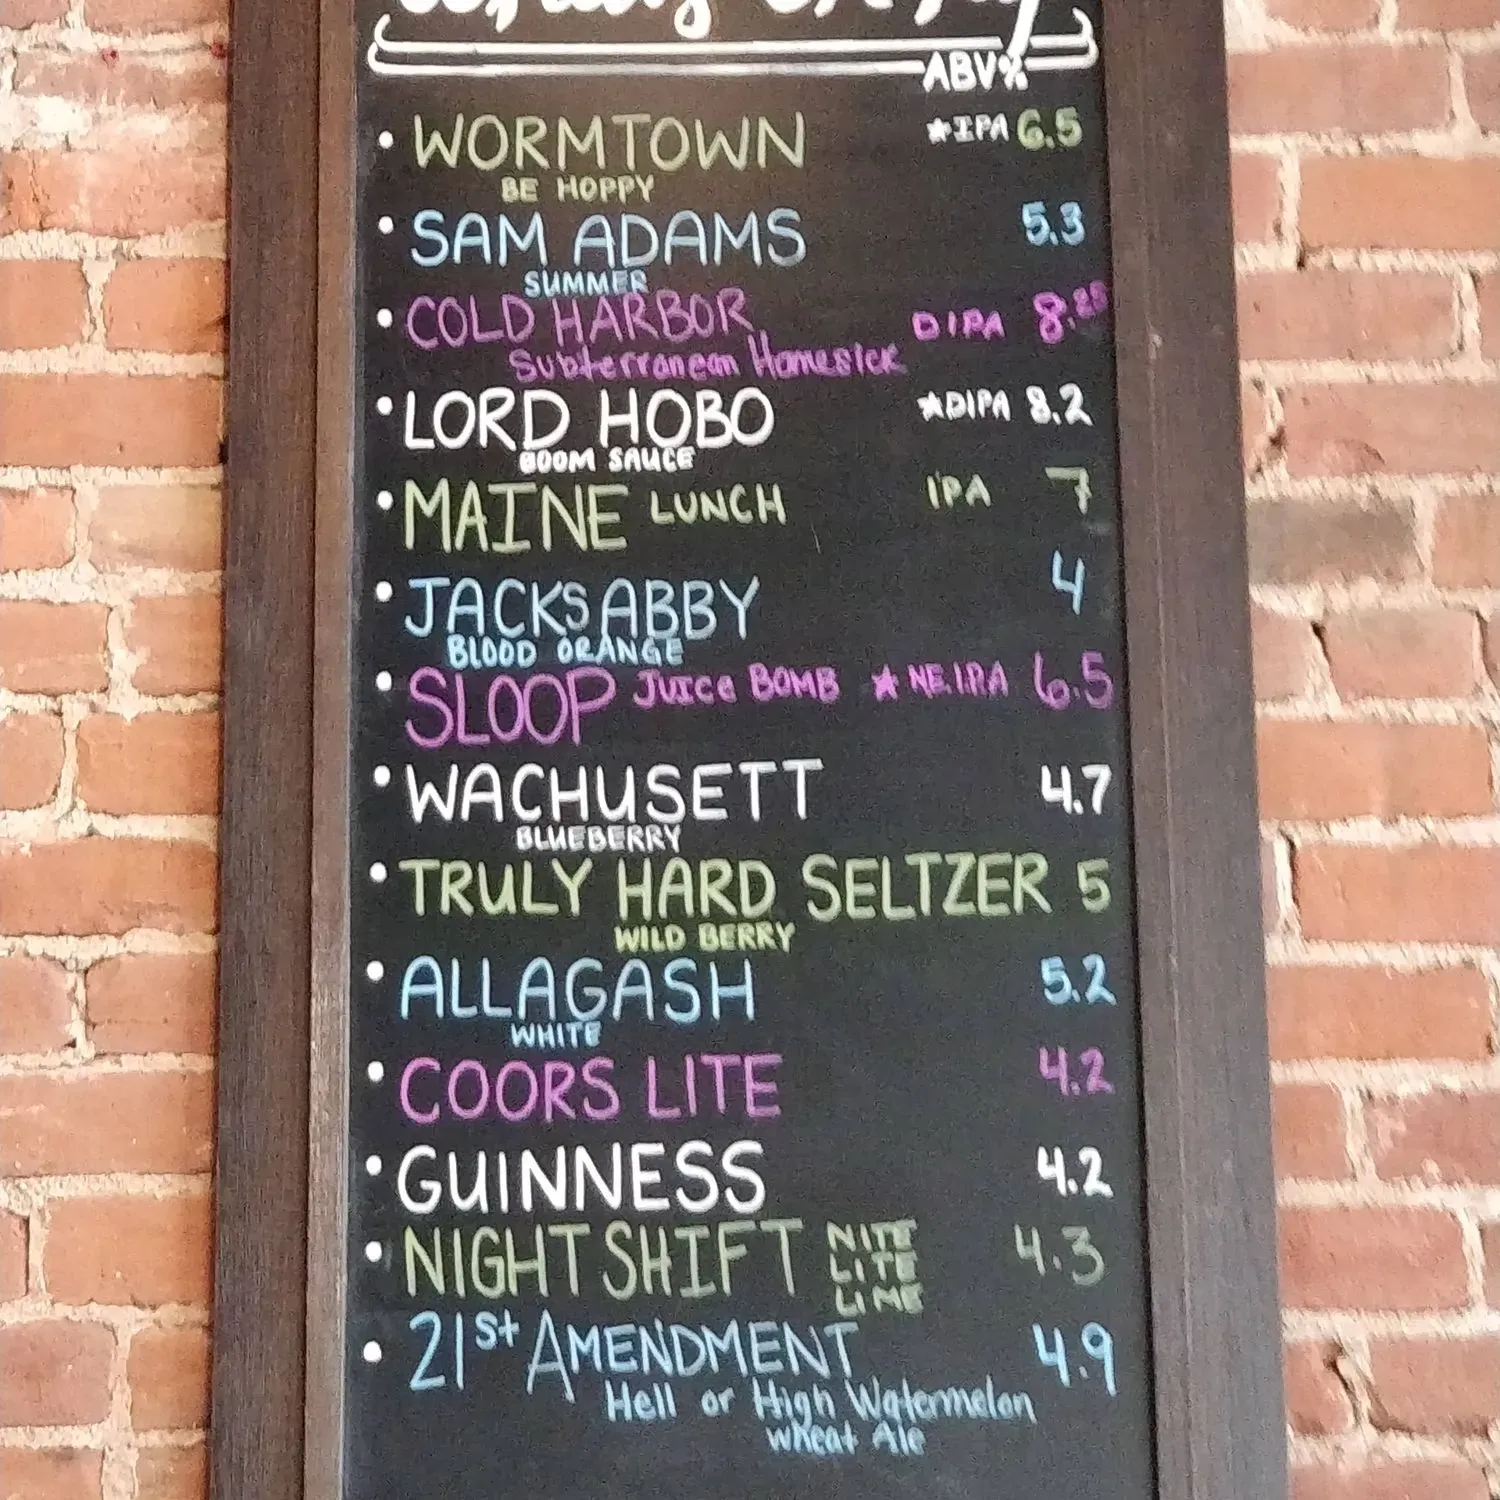 ABV%
• WORMTOWN ★IPA 6.5
BE HOPPY
• SAM ADAMS 5.3
SUMMER
• COLD HARBOR DIPA 8.25
Subterranean Homesick
• LORD HOBO ★DIPA 8.2
BOOM SAUCE
• MAINE LUNCH IPA 7
• JACKS ABBY 4
BLOOD ORANGE
• SLOOP JUICE BOMB ★ NE.I.P.A 6.5
• WACHUSETT 4.7
BLUEBERRY
• TRULY HARD SELTZER 5
WILD BERRY
• ALLAGASH 5.2
WHITE
• COORS LITE 4.2
• GUINNESS 4.2
• NIGHT SHIFT NITE LITE LIME 4.3
• 21st AMENDMENT 4.9
Hell or High Watermelon
wheat Ale